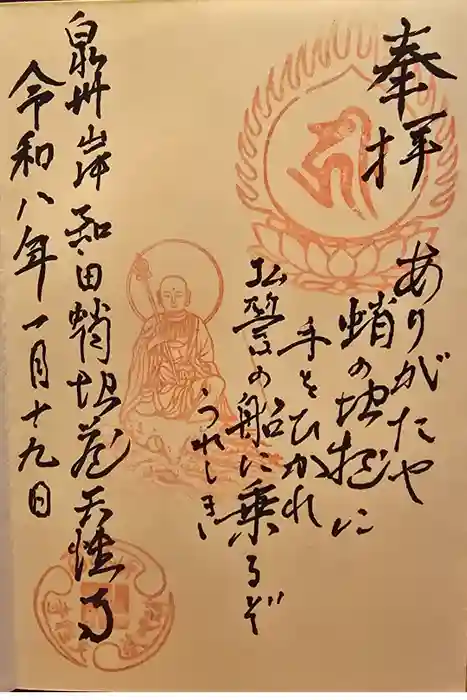 奉拝
ありがたや
蛸の地蔵に
手をひかれ
弘誓の船に乗るぞ
うれしき
泉州岸和田蛸地蔵天性寺
令和八年一月十九日